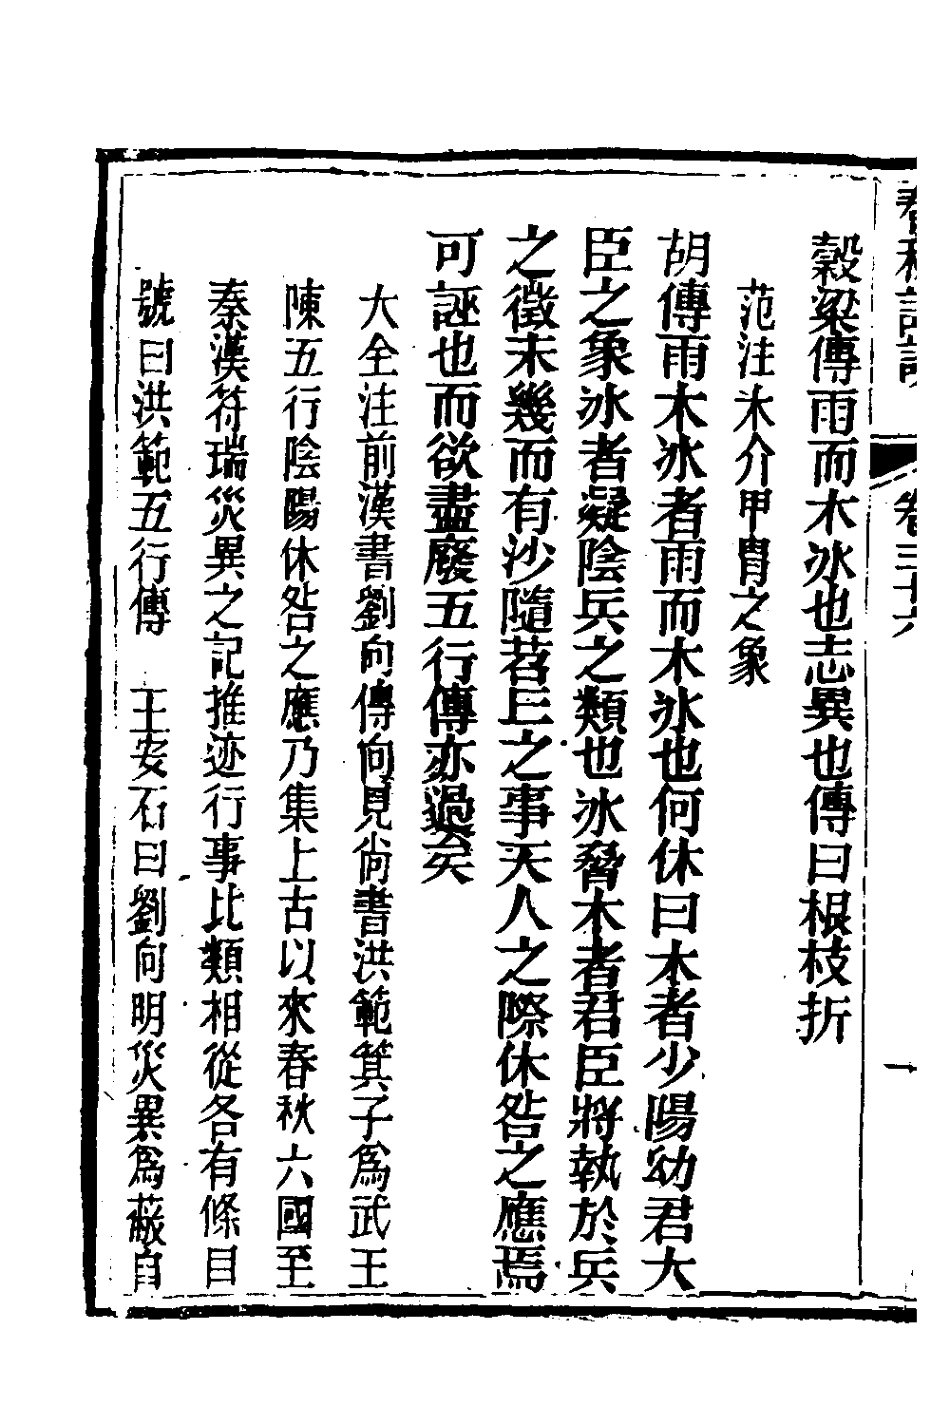 卷三十六
一
穀梁傳雨而木冰也志異也傳曰根枝折
范注氷介甲冑之象
胡傳雨木冰者雨而木冰也何休曰木者少陽幼君大
臣之象冰者凝陰兵之類也冰脅木者君臣將執於兵
之徵未幾而有沙隨苕丘之事天人之際休咎之應焉
可誣也而欲盡廢五行傳亦過矣
大全注前漢書劉向傳向見尚書洪範箕子為武王
陳五行陰陽休咎之應乃集上古以來春秋六國至
秦漢符瑞災異之記推迹行事比類相從各有條目
號曰洪範五行傳　王安石曰劉向明災異為蔽自